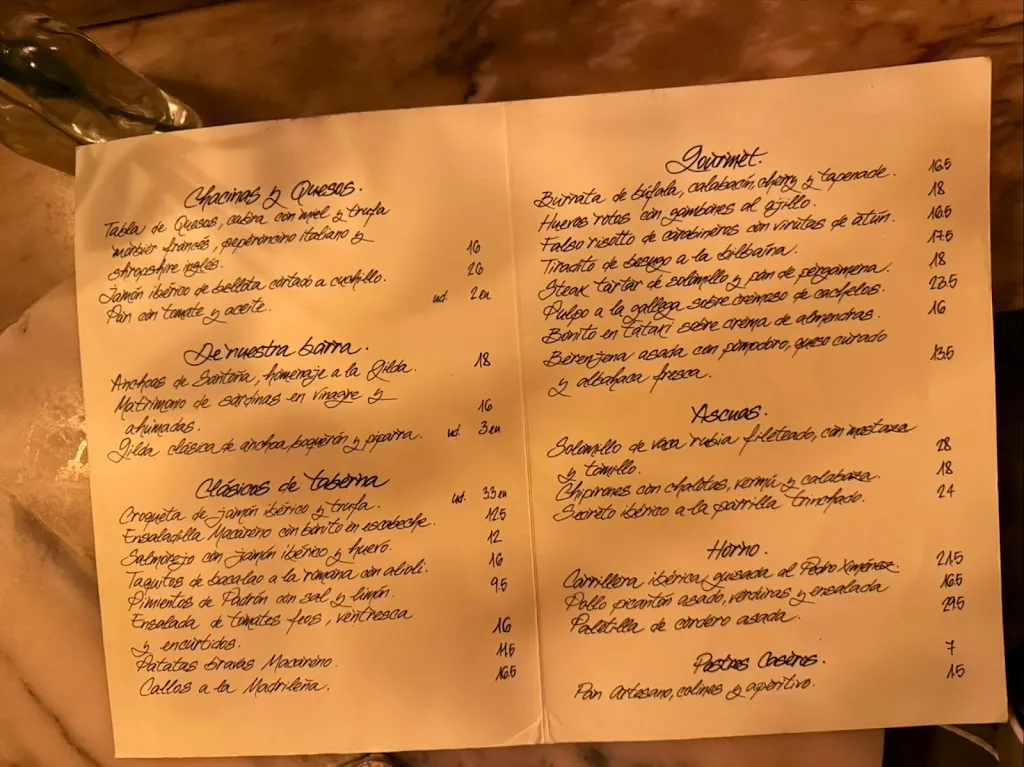 Chacinas y Quesos.
Tabla de Quesos, cabra con miel y trufa
morbier francés, peperoncino italiano y
shropshire inglés. 16
Jamón ibérico de bellota cortado a cuchillo. 26
Pan con tomate y aceite. ud. 2 eu
De nuestra barra.
Anchoas de Santoña, homenaje a la Gilda. 18
Matrimonio de sardinas en vinagre y
ahumadas. 16
Gilda clásica de anchoa boquerón y piparra. ud. 3 eu
Clásicos de taberna
Croqueta de jamón ibérico y trufa. ud. 33 eu
Ensaladilla Macareno con bonito en escabeche. 12'5
Salmorejo con jamón ibérico y huevo. 12
Taquitos de bacalao a la romana con alioli. 16
Pimientos de Padrón con sal y limón. 9'5
Ensalada de tomates feos, ventresca
y encurtidos. 16
Patatas bravas Macareno. 11'5
Callos a la Madrileña. 16'5
Gourmet.
Burrata de búfala, calabacín, cherry y tapenade. 16'5
Huevos rotos con gambones al ajillo. 18
Falso risotto de carabineros con virutas de atún. 16'5
Tiradito de besugo a la bilbaína. 17'5
Steak tartar de solomillo y pan de pergamena. 18
Pulpo a la gallega sobre cremoso de cachelos. 23'5
Bonito en tataki sobre crema de almendras. 16
Berenjena asada con pomodoro, queso curado
y albahaca fresca. 13'5
Ascuas.
Solomillo de vaca rubia fileteado, con mostaza
y tomillo. 28
Chipirones con chalotas, vermú y calabaza. 18
Secreto ibérico a la parrilla trinchado. 24
Horno.
Carrillera ibérica guisada al Pedro Ximénez. 21'5
Pollo picantón asado, verduras y ensalada 16'5
Paletilla de cordero asada. 29'5
Postres Caseros. 7
Pan Artesano, colines y aperitivo. 1'5